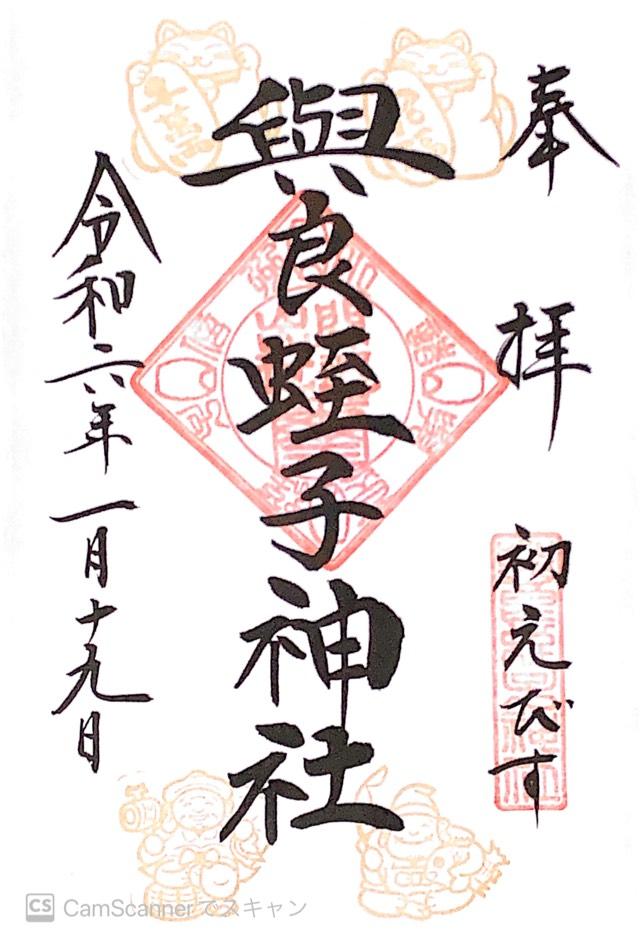 奉拝
初えびす
與良蛭子神社
令和六年一月十九日
CS CamScannerでスキャン